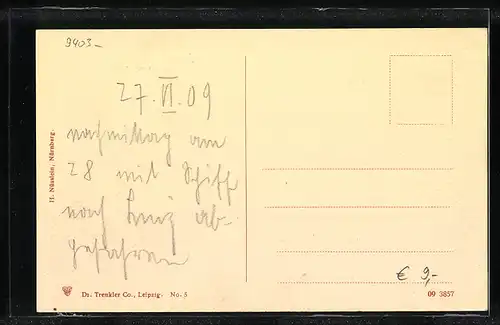 9403-
27. VI. 09
nachmittag um
28 mit Schiff
nach Linz ab-
gefahren
H. Nüsslein, Nürnberg.
Dr. Trenkler Co., Leipzig. No. 5
€ 9,-
09 3857